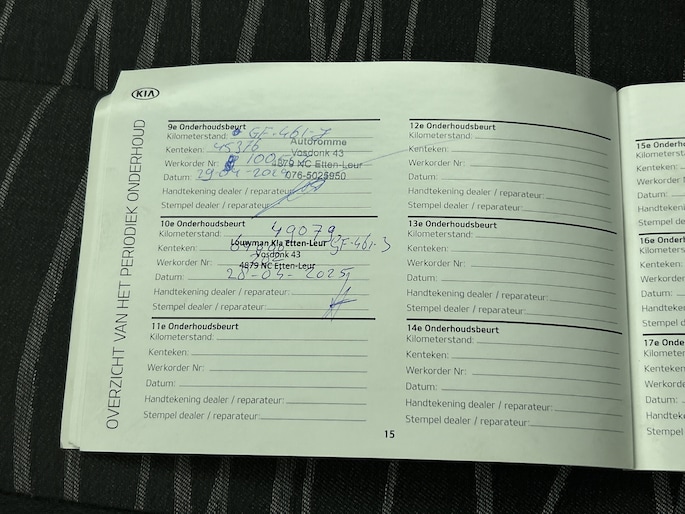 KIA
OVERZICHT VAN HET PERIODIEK ONDERHOUD
9e Onderhoudsbeurt
Kilometerstand: GF-461-J
Kenteken: 45376
Autodromme
Vosdonk 43
Werkorder Nr:
4879 NC Etten-Leur
Datum: 29-04-2024
076-5025950
Handtekening dealer / reparateur:
Stempel dealer / reparateur:
10e Onderhoudsbeurt
Kilometerstand: 49079
Kenteken: GF-461-J
Louwman Kia Etten-Leur
Werkorder Nr:
Vosdonk 43
4879 NC Etten-Leur
Datum: 28-05-2025
Handtekening dealer / reparateur:
Stempel dealer / reparateur:
11e Onderhoudsbeurt
Kilometerstand:
Kenteken:
Werkorder Nr:
Datum:
Handtekening dealer / reparateur:
Stempel dealer / reparateur:
12e Onderhoudsbeurt
Kilometerstand:
Kenteken:
Werkorder Nr:
Datum:
Handtekening dealer / reparateur:
Stempel dealer / reparateur:
13e Onderhoudsbeurt
Kilometerstand:
Kenteken:
Werkorder Nr:
Datum:
Handtekening dealer / reparateur:
Stempel dealer / reparateur:
14e Onderhoudsbeurt
Kilometerstand:
Kenteken:
Werkorder Nr:
Datum:
Handtekening dealer / reparateur:
Stempel dealer / reparateur:
15
15e Onderho
Kilometerst
Kenteken:
Werkorder N
Datum:
Handtekeni
Stempel d
16e Onder
Kilometer
Kenteken:
Werkorder
Datum:
Handteken
Stempel
17e Onde
Kilomete
Kenteken
Werkord
Datum:
Handtek
Stempel